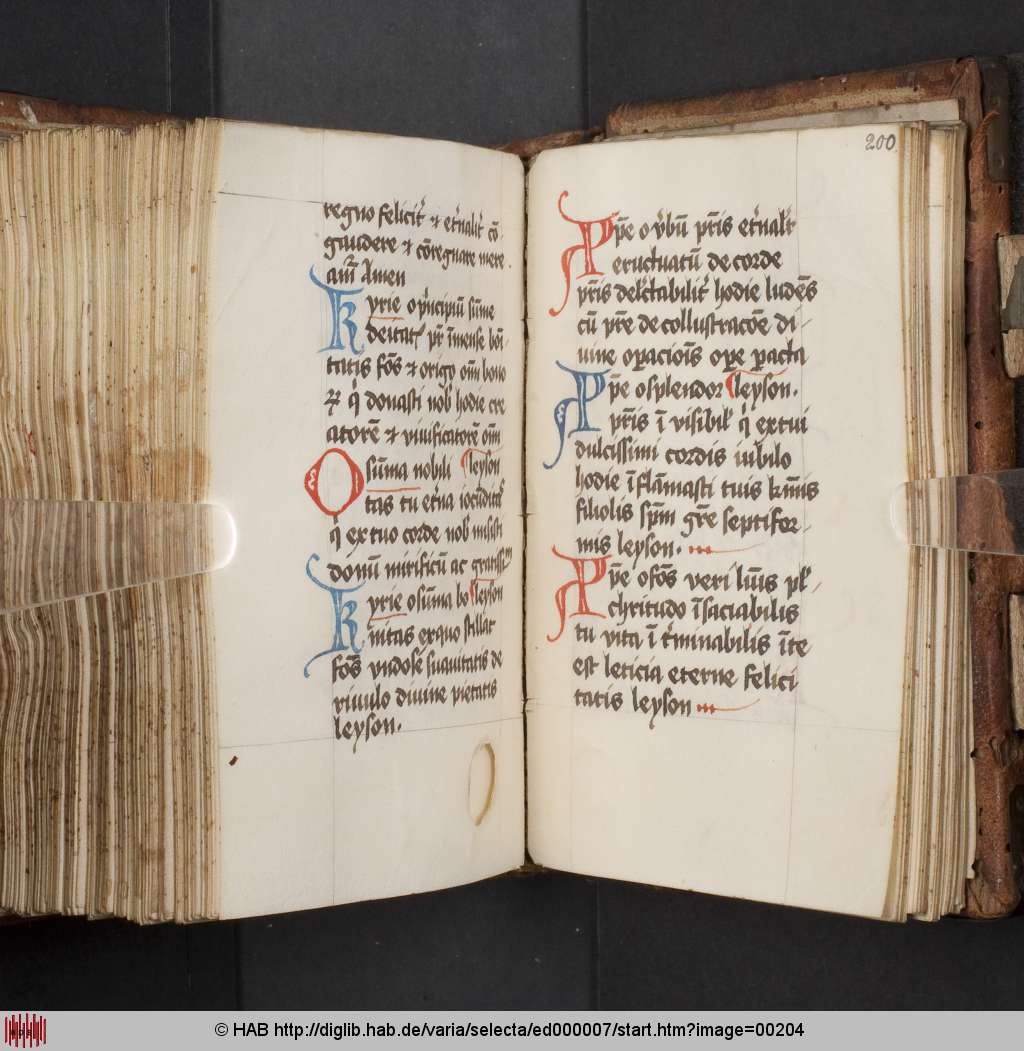 regno felicit̛ ⁊ et̛nalit̛ cō-
gaudere ⁊ cōregnare mere
am̄ Amen
Kyrie o p̛ncipiū sūme
deitat pr̄ īmense boī-
tatis fōs ⁊ origo om̄ bono
ꝝ q̛ donasti nob̛ hodie cre
atorē ⁊ viuificatorē om̄
leyson
O sūma nobili
tas tu et̛na iocūditas
q̛ ex tuo corde nob̛ misisti
donū mirificū ac gratissm̄
leyson
Kyrie o sūma bo
nitas ex quo stillat
fōs vndose suauitatis de
riuulo diuine pietatis
leyson.
200
Xp̄e o v̛bū pr̄is et̛nalit̛
eructuatū de corde
pr̄is delc̄tabilit̛ hodie ludēs
cū pr̄e de collustracōe di-
uine oꝑacioīs oꝑe ꝑacta
leyson.
Xp̄e o splendor
pr̄is ī visibil̛ q̛ ex tui
dulcissimi cordis iubilo
hodie īflāmasti tuis km̄is
filiolis sp̄m gr̄e septifor-
mis leyson.
Xp̄e o fōs veri lūīs pl̛-
chritudo īsaciabilis
tu vita ī t̛minabilis īte
est leticia eterne felici
tatis leyson
© HAB http://diglib.hab.de/varia/selecta/ed000007/start.htm?image=00204